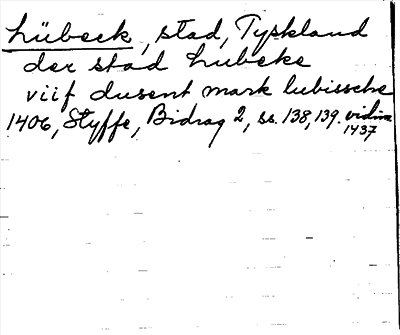 Lübeck, stad, Tyskland
der stad Lubeke
viif dusent mark lubissche
1406, Styffe, Bidrag 2, ss. 138, 139. vidim
1437